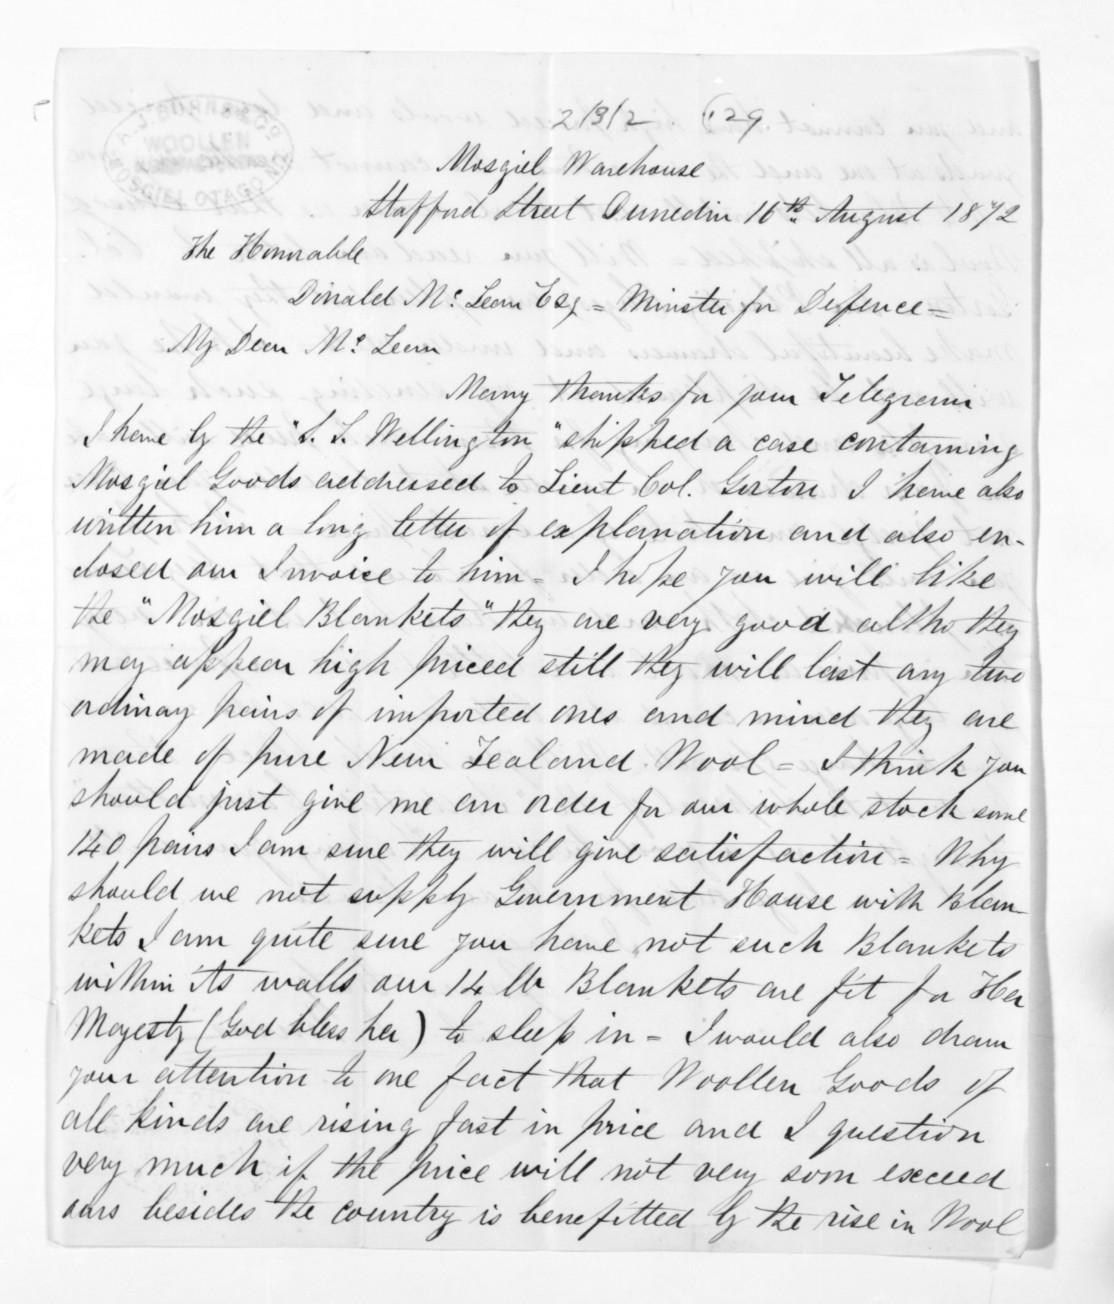 A. J. BURNS & CO
WOOLLEN
MOSGIEL OTAGO N.Z.
2/3/2 629
Mosgiel Warehouse
Stafford Street Dunedin 16th August 1872
The Honorable
Donald Mc Lean Esq = Minister for Defence =
My Dear Mc Lean
Many thanks for your Telegram
I have by the "S. S. Wellington" shipped a case containing
Mosgiel Goods addressed to Lieut Col. Gorton I have also
written him a long letter of explanation and also en-
closed our Invoice to him = I hope you will like
the "Mosgiel Blankets" they are very good altho they
may appear high priced still they will last any two
ordinay pairs of imported ones and mind they are
made of pure New Zealand Wool = I think you
should just give me an order for our whole stock some
140 pairs I am sure they will give satisfaction = Why
should we not supply Government House with Blan-
kets I am quite sure you have not such Blankets
within its walls our 14 lb Blankets are fit for Her
Majesty (God bless her) to sleep in = I would also draw
your attention to one fact that Woollen Goods of
all kinds are rising fast in price and I question
very much if the price will not very soon exceed
ours besides the country is benefitted by the rise in Wool